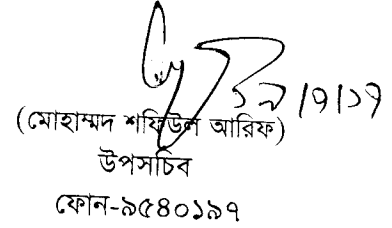 ১৯/৭/১৭
(মোহাম্মদ শফিউল আরিফ)
উপসচিব
ফোন-৯৫৪০১৯৭